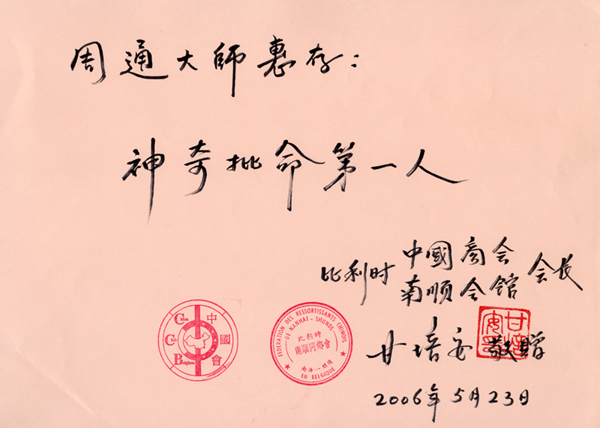 周通大師惠存：
神奇批命第一人
中國商会
比利时 会长
南順会館
甘培安敬贈
2006年5月23日
中
國
會
FEDERATION DES RESSORTISSANTS CHINOIS
DE NANHAI - SHUNDE
比利時
南順同鄉會
EN BELGIQUE